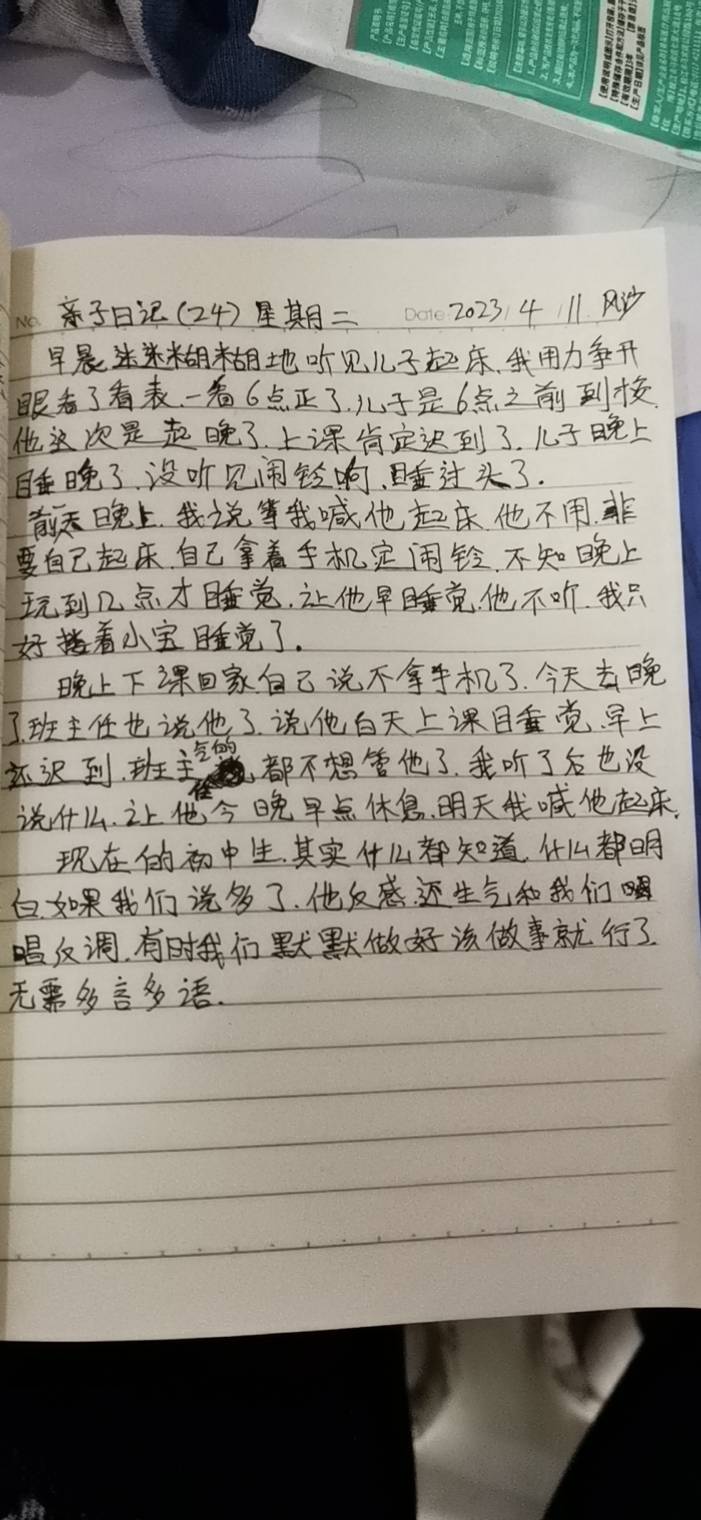 No. 亲子日记(24) 星期二 Date 2023/4/11 风沙
早晨迷迷糊糊地听见儿子起床,我用力争开
眼看了看表,一看6点正了,儿子是6点之前到校,
他这次是起晚了,上课肯定迟到了,儿子晚上
睡晚了,没听见闹铃响,睡过头了.
前天晚上,我说等我喊他起床,他不用,非
要自己起床,自己拿着手机定闹铃,不知晚上
玩到几点才睡觉,让他早睡觉,他不听,我只
好搂着小宝睡觉了.
晚上下课回家自己说不拿手机了,今天去晚
了,班主任也说他了,说他白天上课睡觉,早上
还迟到,班主任气的都不想管他了,我听了后也没
说什么,让他今晚早点休息,明天我喊他起床,
现在的初中生,其实什么都知道,什么都明
白,如果我们说多了,他反感,还生气和我们
唱反调,有时我们默默做好该做事就行了,
无需多言多语.